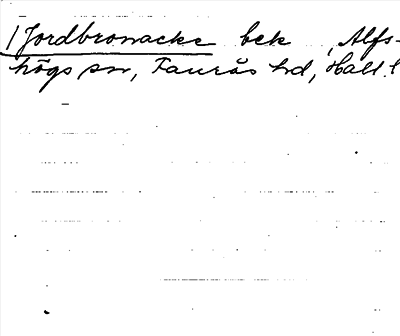 Jordbronacke bek, Alfs-
högs sn, Faurås hd, Hall. l